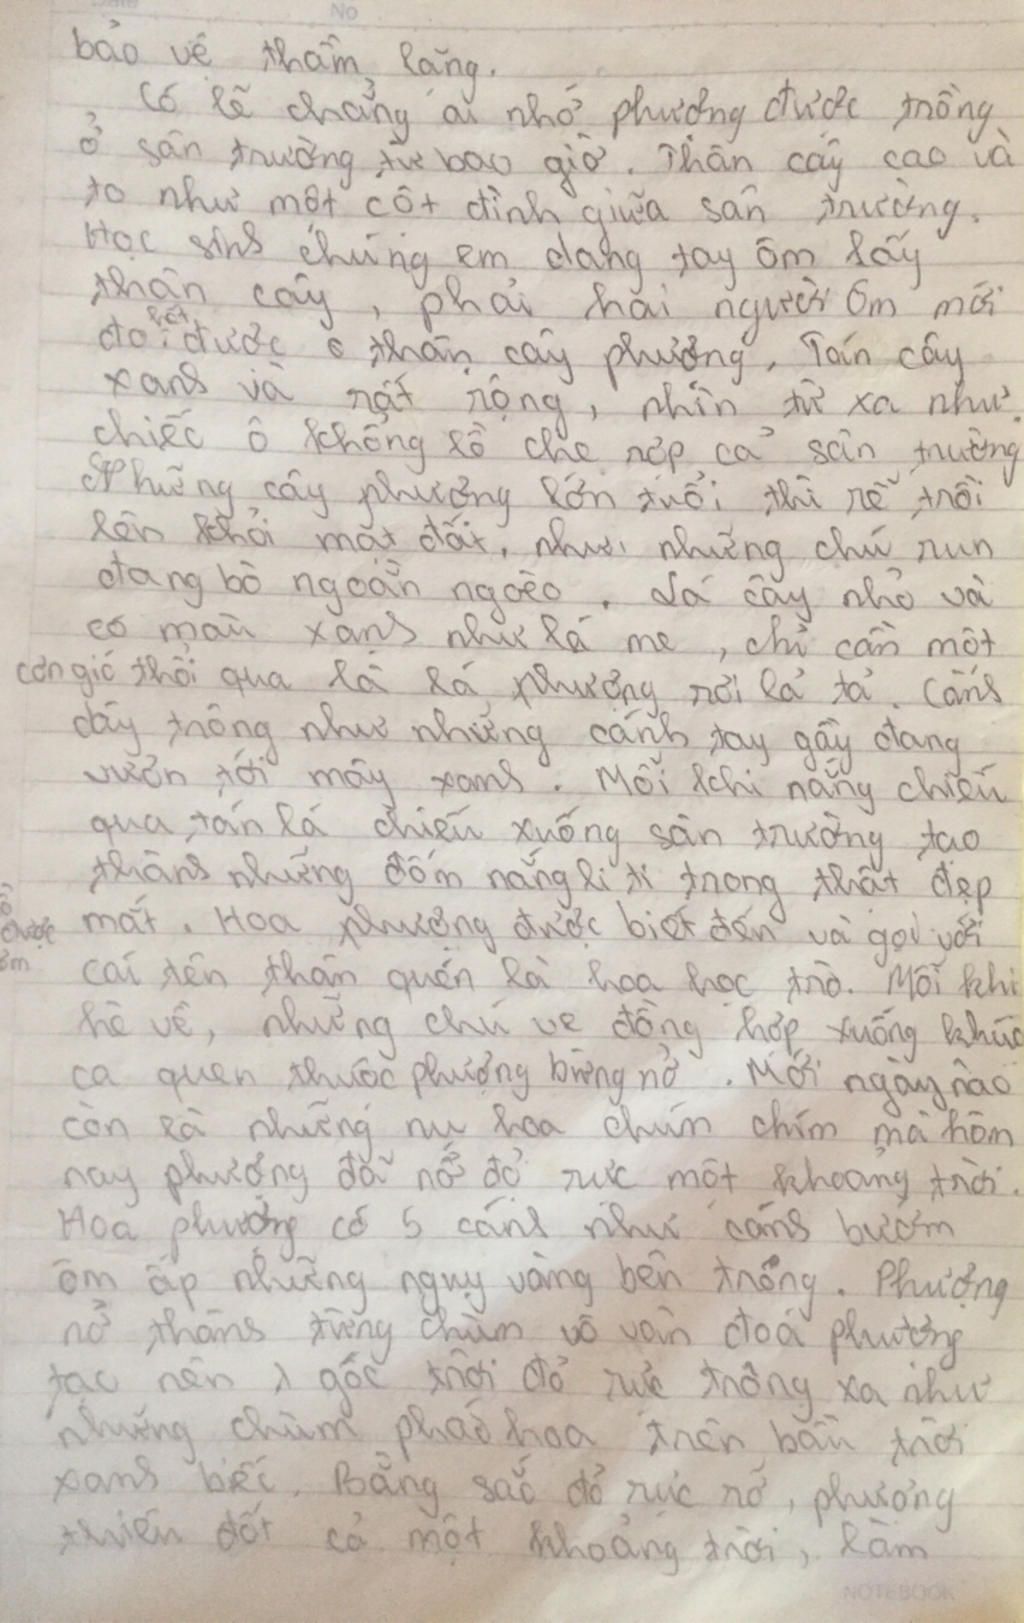 No
bảo vệ thầm lặng.
Có lẽ chẳng ai nhớ phượng được trồng
ở sân trường từ bao giờ. Thân cây cao và
to như một cột đình giữa sân trường.
Học sinh chúng em dang tay ôm lấy
thân cây, phải hai người ôm mới
hết
đo được thân cây phượng. Tán cây
xanh và rất rộng, nhìn từ xa như
chiếc ô khổng lồ che rợp cả sân trường
Những cây phượng lớn tuổi thì rễ trồi
lên khỏi mặt đất, như những chú run
đang bò ngoằn ngoèo. Lá cây nhỏ và
có màu xanh như lá me, chỉ cần một
cơn gió thổi qua là lá phượng rơi lả tả. Cành
cây trông như những cánh tay gầy đang
vươn tới mây xanh. Mỗi khi nắng chiếu
qua tán lá chiếu xuống sân trường tạo
thành những đốm nắng li ti trong thật đẹp
mắt. Hoa phượng được biết đến và gọi với
được
cái tên thân quen là hoa học trò. Mỗi khi
hè về, những chú ve đồng hợp xướng khúc
ca quen thuộc phượng bừng nở. Mới ngày nào
còn là những nụ hoa chúm chím mà hôm
nay phượng đã nở đỏ rực một khoảng trời.
Hoa phượng có 5 cánh như cánh bướm
ôm ấp những nguỵ vàng bên trong. Phượng
nở thành từng chùm vô vàn đoá phượng
tạo nên 1 góc trời đỏ rực trông xa như
những chùm pháo hoa trên bầu trời
xanh biếc. Bằng sắc đỏ rực rỡ, phượng
thiêu đốt cả một khoảng trời, làm
NOTEBOOK